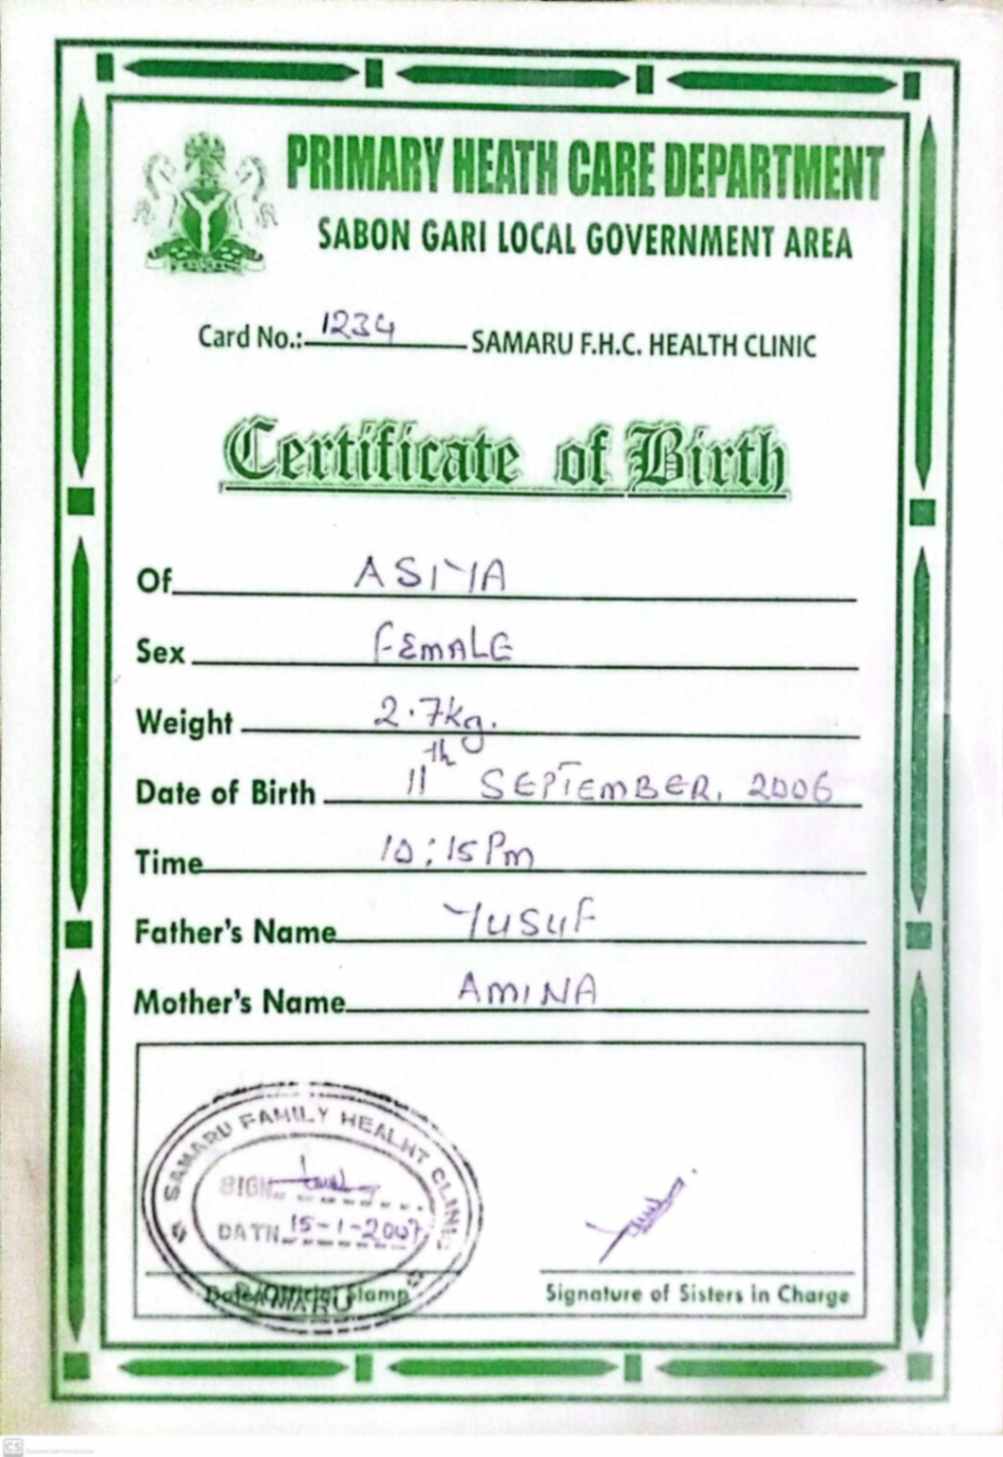 PRIMARY HEATH CARE DEPARTMENT
SABON GARI LOCAL GOVERNMENT AREA
Card No.: 1234 SAMARU F.H.C. HEALTH CLINIC
Certificate of Birth
Of ASIYA
Sex FEMALE
Weight 2.7kg.
Date of Birth 11th SEPTEMBER, 2006
Time 10:15Pm
Father's Name YUSUF
Mother's Name AMINA
SAMARU FAMILY HEALHT CLINIC
SIGN
DATN 15-1-2007
SAMARU
Date/Official Stamp
Signature of Sisters in Charge
CS